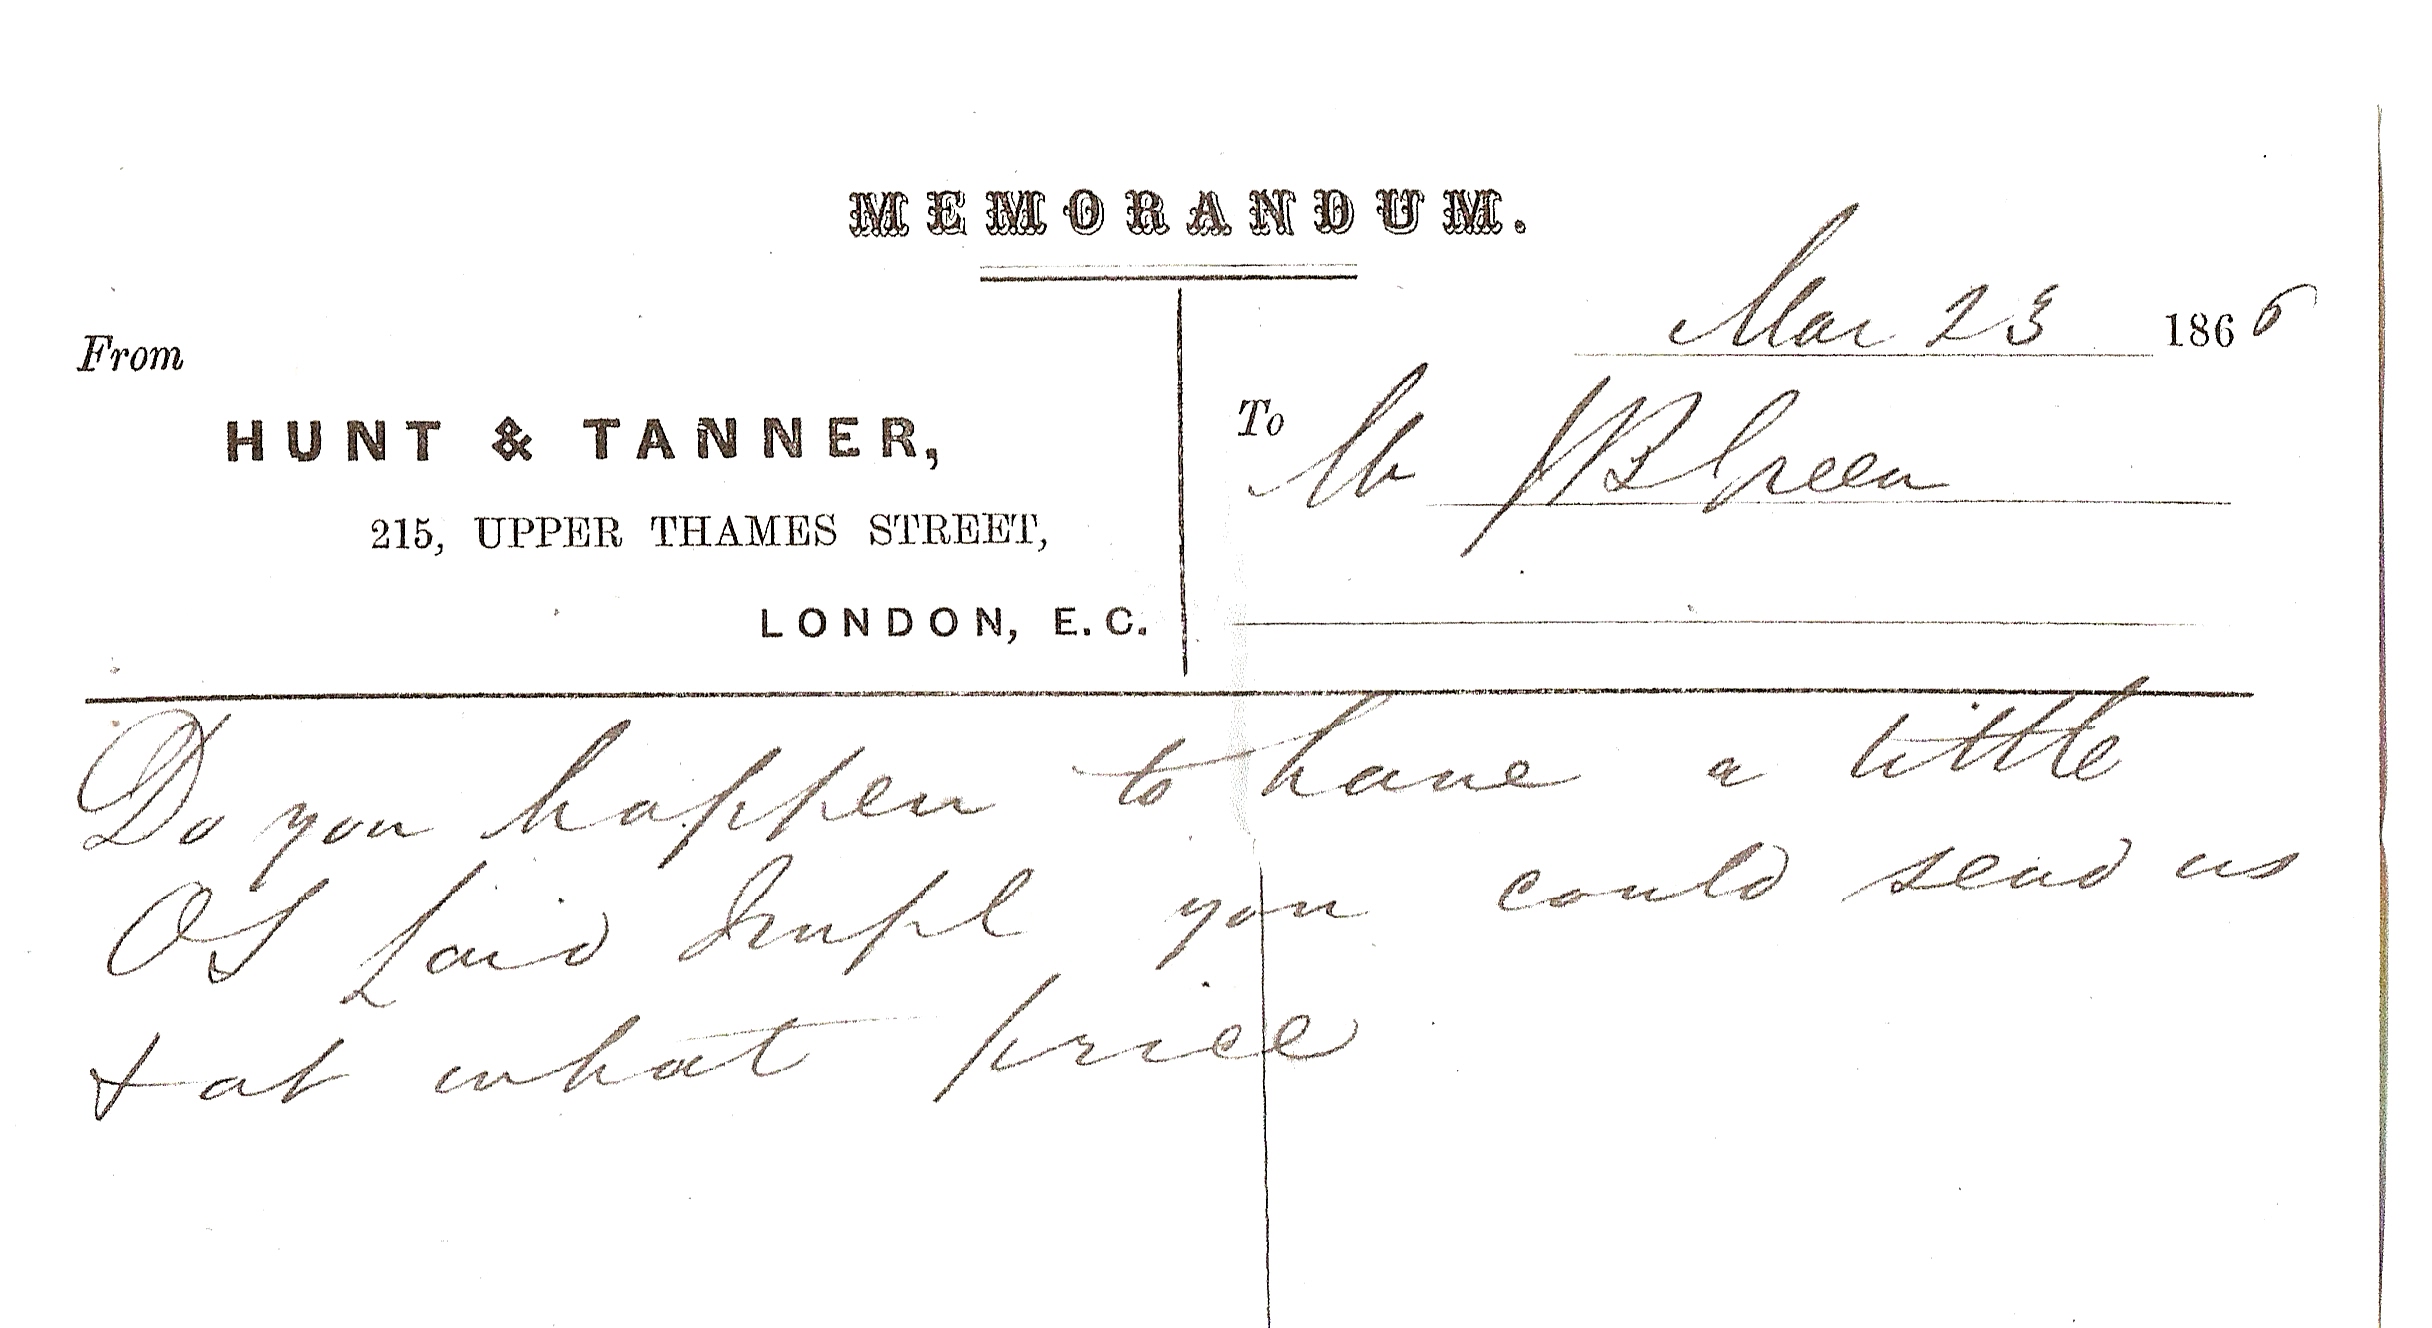 MEMORANDUM.
Mar 23 1866
From
HUNT & TANNER,
215, UPPER THAMES STREET,
LONDON, E.C.
To
Mr J B Green
Do you happen to have a little
Laid Impl you could send us
& at what price